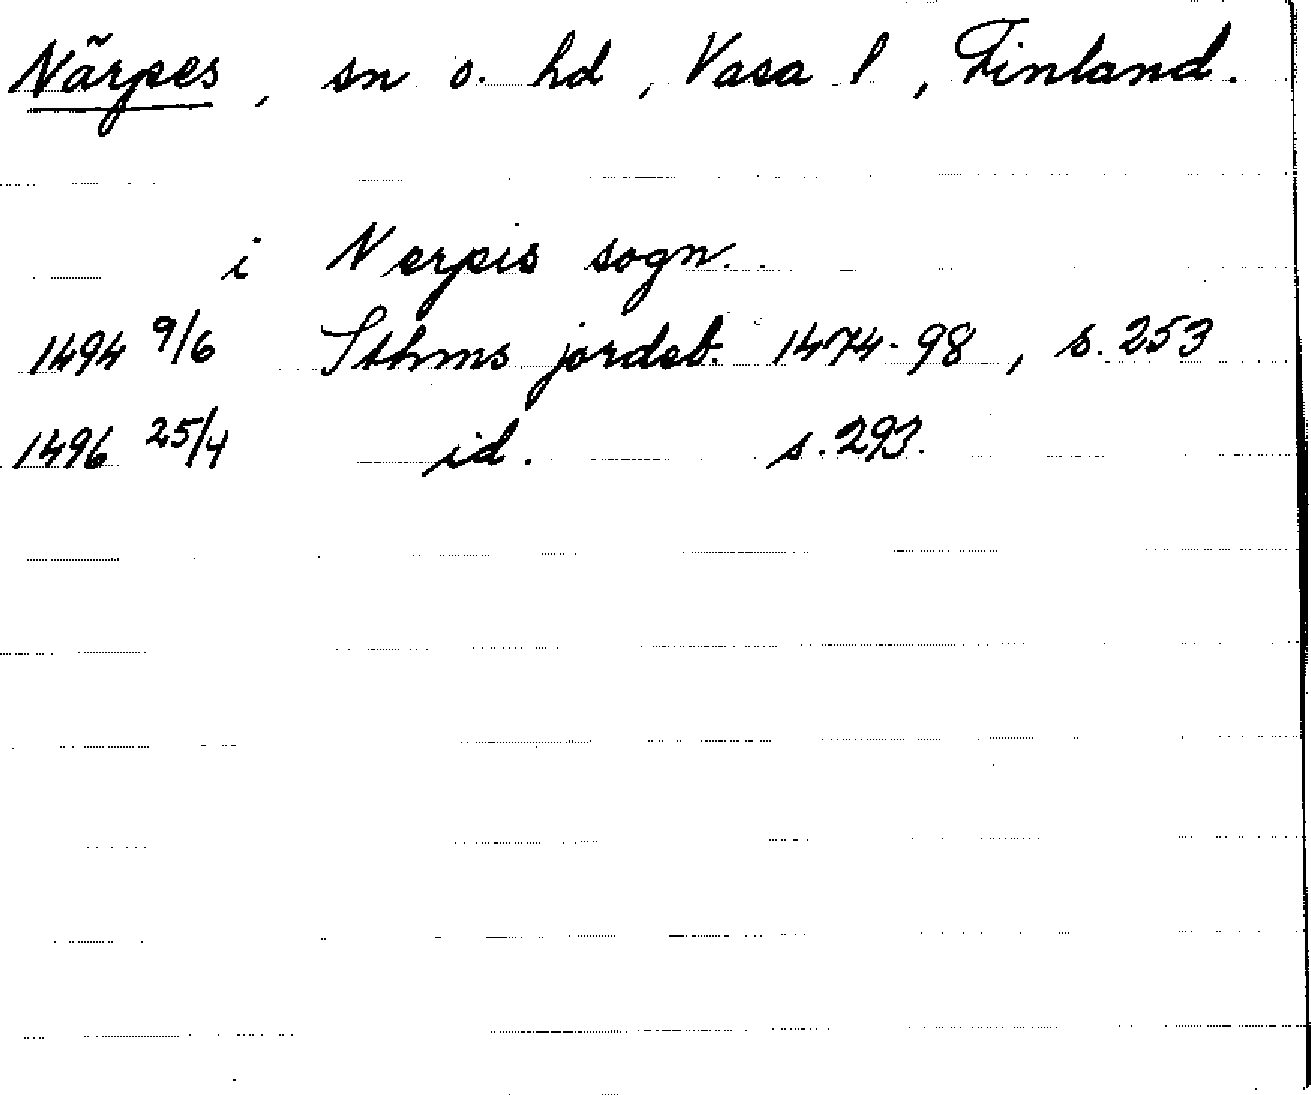 Närpes, sn o. hd, Vasa l, Finland.
i Nerpis sogn.
1494 9/6 Sthms jordeb. 1474-98, s. 253
1496 25/4 id. s. 293.